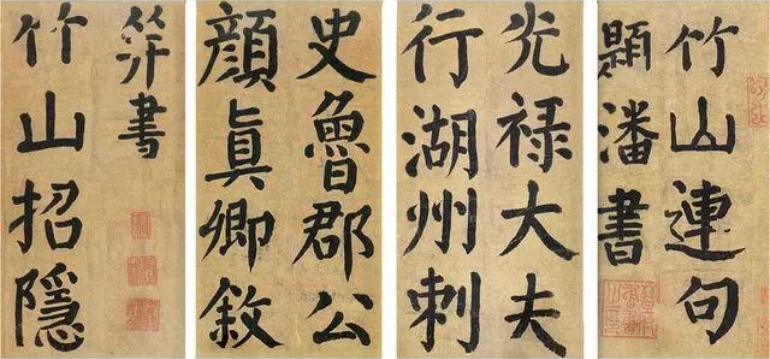 竹山連句
題潘書
光禄大夫
行湖州刺
史魯郡公
顔真卿敘
并書
竹山招隱